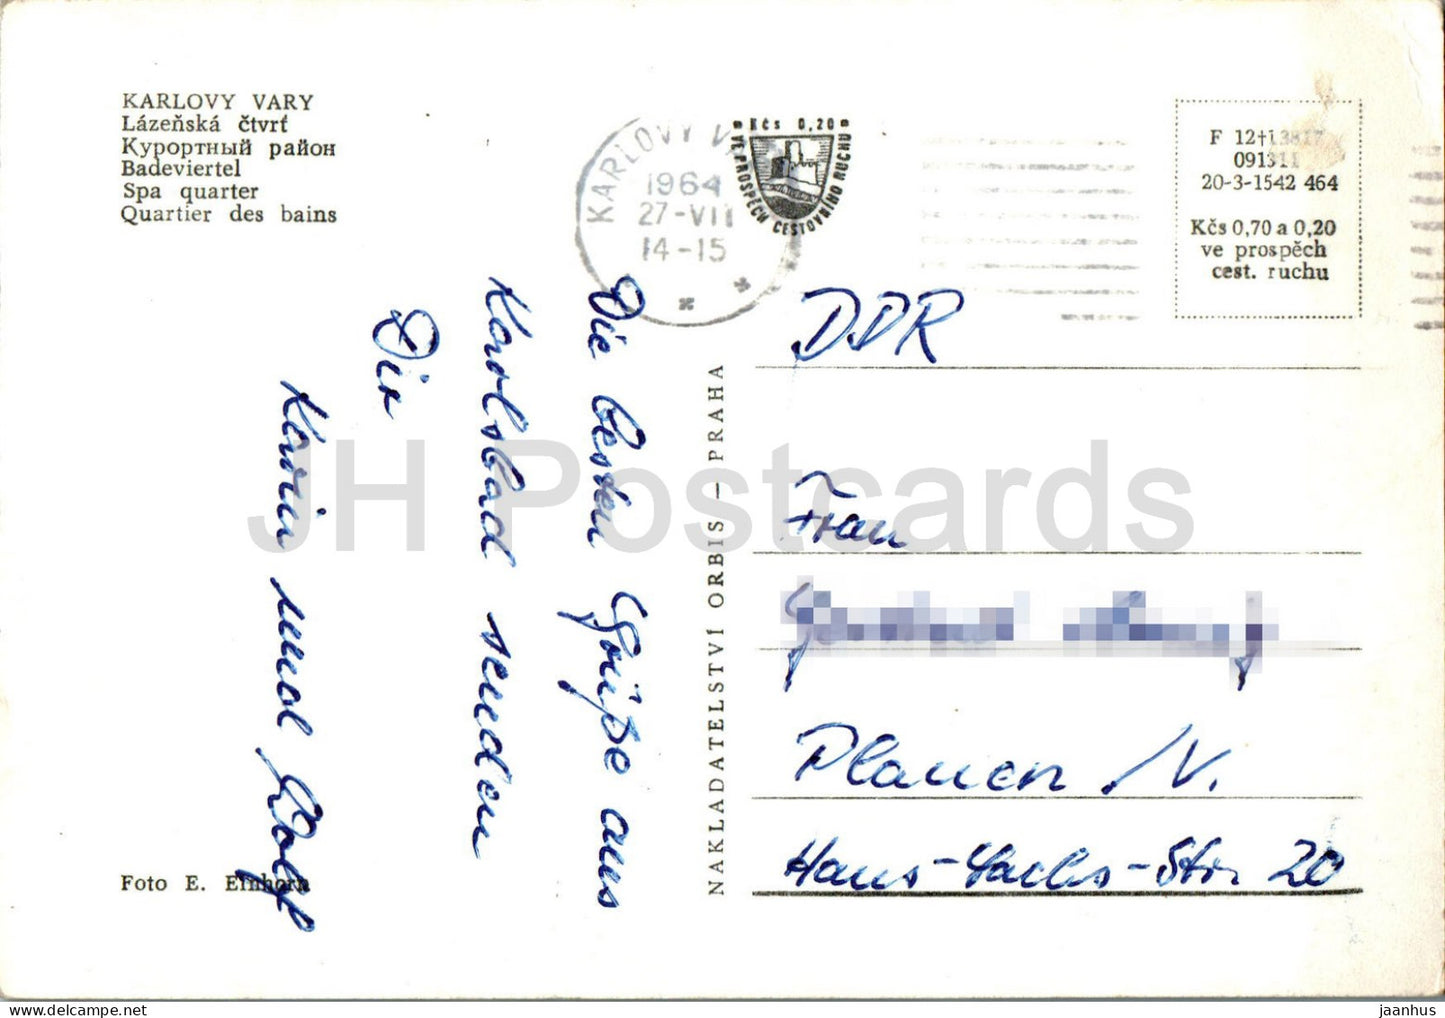 KARLOVY VARY
Lázeňská čtvrť
Курортный район
Badeviertel
Spa quarter
Quartier des bains
KARLOVY
1964
27-VII
14-15
Kčs 0,20
VE PROSPĚCH CESTOVNÍHO RUCHU
F 12†13817
091311
20-3-1542 464
Kčs 0,70 a 0,20
ve prospěch
cest. ruchu
Die besten Grüße aus
Karlsbad senden
Dir
Karin und Rolf
NAKLADATELSTVÍ ORBIS — PRAHA
DDR
Frau
Plauen /V.
Hans-Sachs-Str. 20
Foto E. Einhorn
JH Postcards
delcampe.net
jaanhus